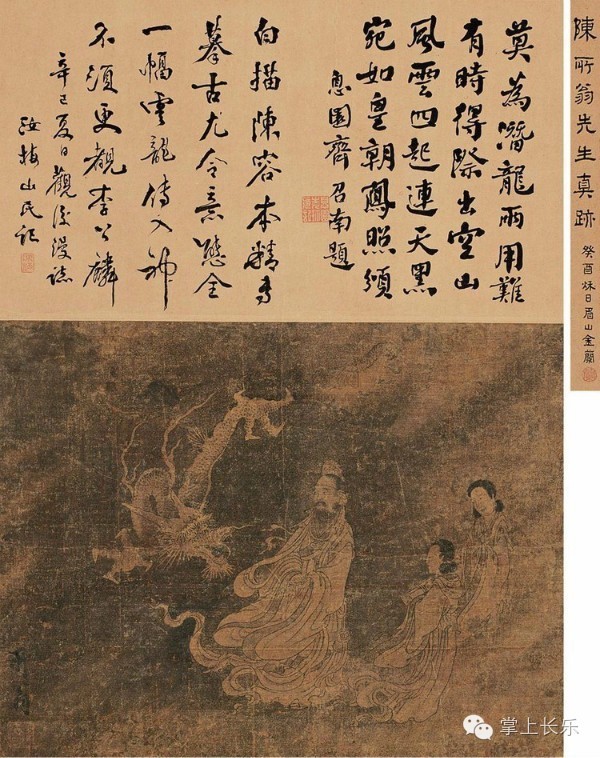 陳所翁先生真跡
癸酉秌日眉山金
莫為潛龍雨用難
有時得際出空山
風雲四起連天黑
宛如皇朝鳳照頒
息園齊召南題
白描陳容本精專
摹古尤令意態全
一幅雲龍傳入神
不須更觀李公麟
辛巳夏日觀後謾誌
汝梅山民記
掌上长乐